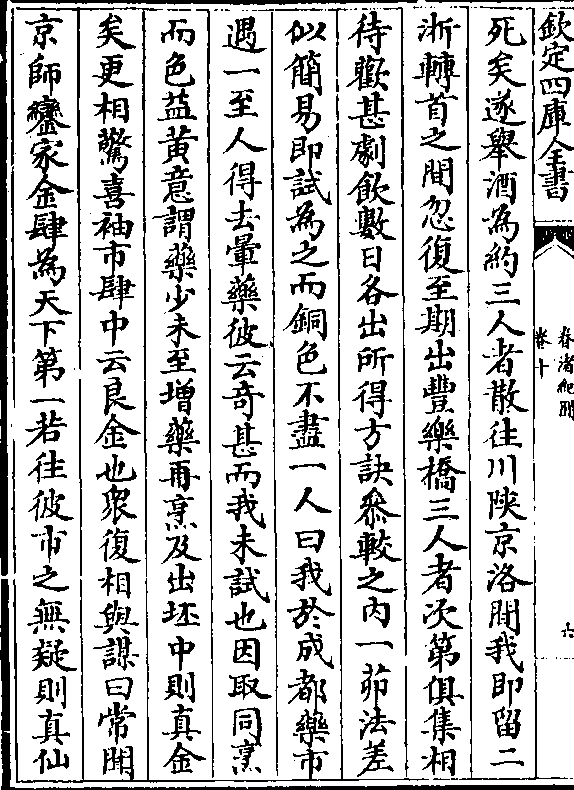 欽定四庫全書
春渚紀聞
卷十
六
死矣遂舉酒為約三人者散往川陜京洛間我即留二
浙轉首之間忽復至期出豐樂橋三人者次第俱集相
待歡甚劇飲數日各出所得方訣叅較之内一茆法差
似簡易即試為之而銅色不盡一人曰我於成都藥市
遇一至人得去暈藥彼云竒甚而我未試也因取同烹
而色益黄意謂藥少未至增藥再烹及出坯中則真金
矣更相驚喜袖市肆中云良金也衆復相與謀曰常聞
京師欒家金肆為天下第一若往彼市之無疑則真仙